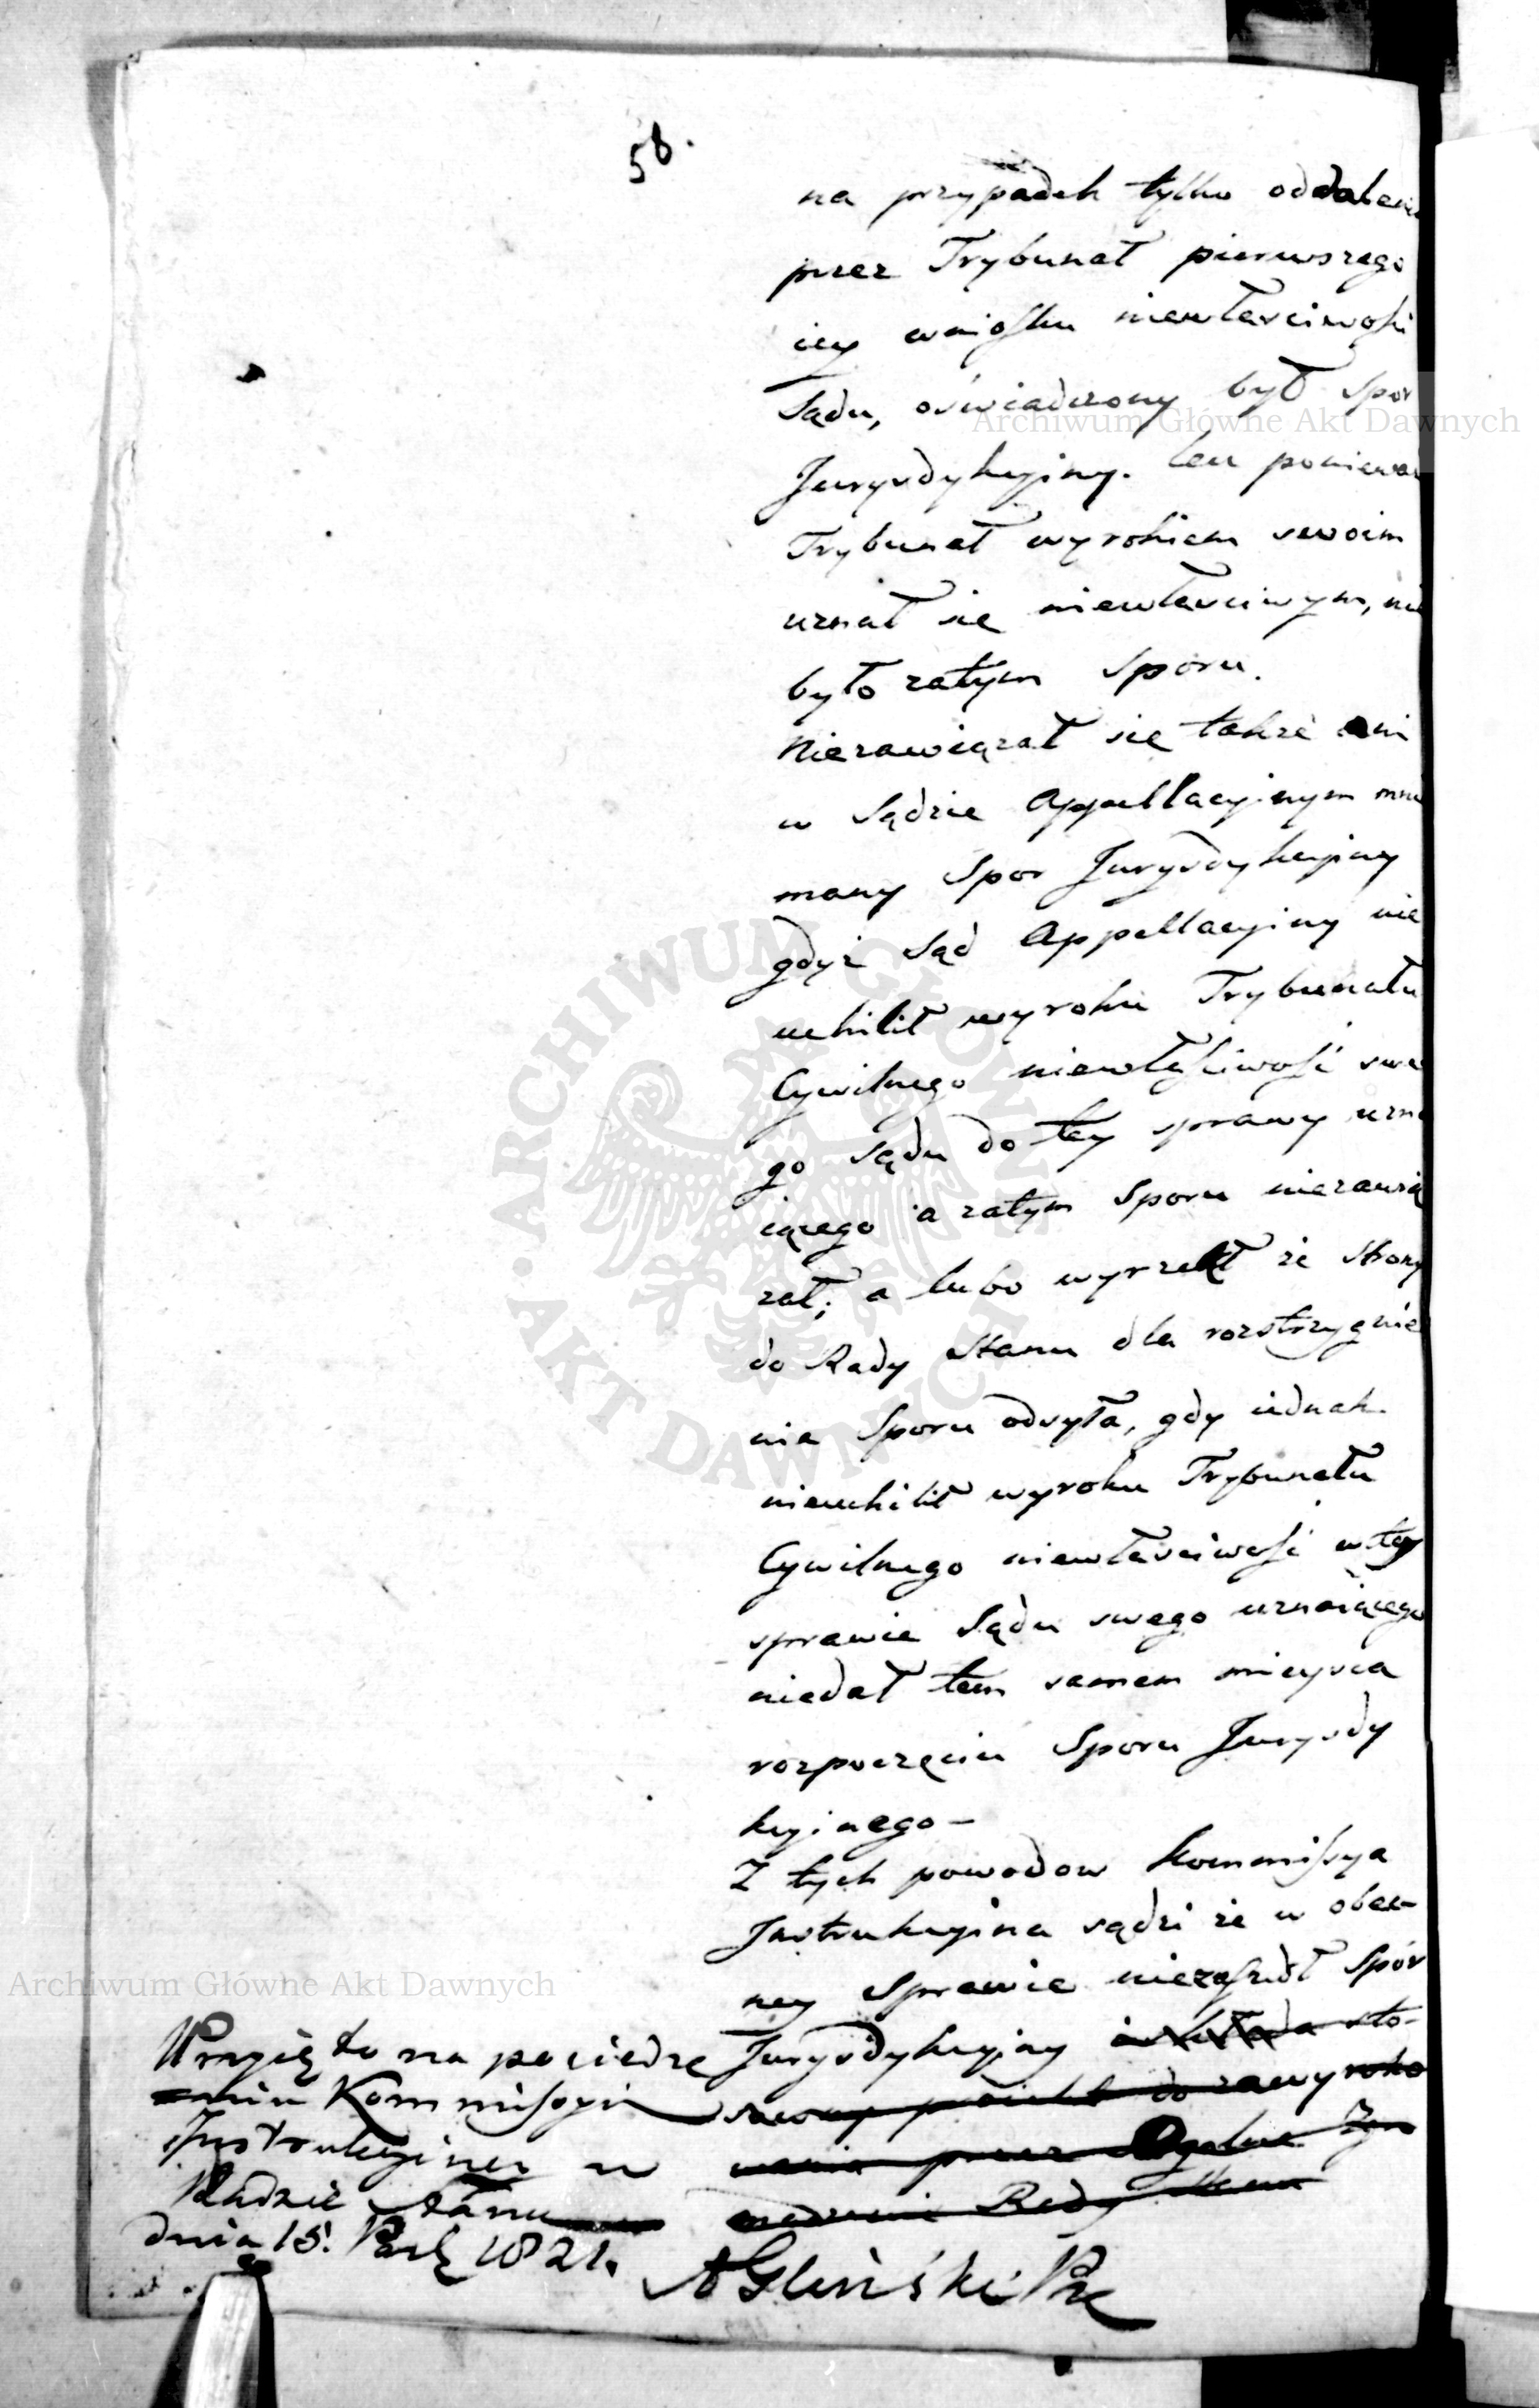 58.
na przypadek tylko oddaleni
przez Trybunał pierwszego
iey wniosku niewłasciwosci
Sądu, oświadczony był Spor
Jurysdykcyiny. lecz poniewa
Trybunał wyrokiem swoim
uznał się niewłasciwym, nie
było zatym Sporu.
Niezawiązał się także ani
w Sądzie Appellacyinym mnie
many Spor Jurysdykcyiny
gdyż Sąd Appellacyiny nie
uchilił wyroku Trybunału
Cywilnego niewłaściwość swe
go Sądu do tey sprawy uzna
iącego a zatym Sporu niezawią
zał; a lubo wyrzekł że Strony
do Rady Stanu dla rozstrzygnie
nia Sporu odsyła, gdy iednak
nieuchilił wyroku Trybunału
Cywilnego niewłasciwość w tey
sprawie Sądu swego uznaiącego
niedał tem samem mieysca
rozpoczęciu Sporu Jurysdy
kcyinego –
Z tych powodow Kommissya
Instrukcyina sądzi że w obec-
ney Sprawie niezaszedł Spór
Jurysdykcyiny sto-
do zawyroko
wania przez Ogolne Zgro
madzenie Rady Stanu
Przyięto na posiedze
niu Kommissyi
Instrukcyiney w
Radzie Stanu
dnia 15. Paź 1821.
A Gliński
Archiwum Główne Akt Dawnych
ARCHIWUM GŁÓWNE AKT DAWNYCH
Archiwum Główne Akt Dawnych